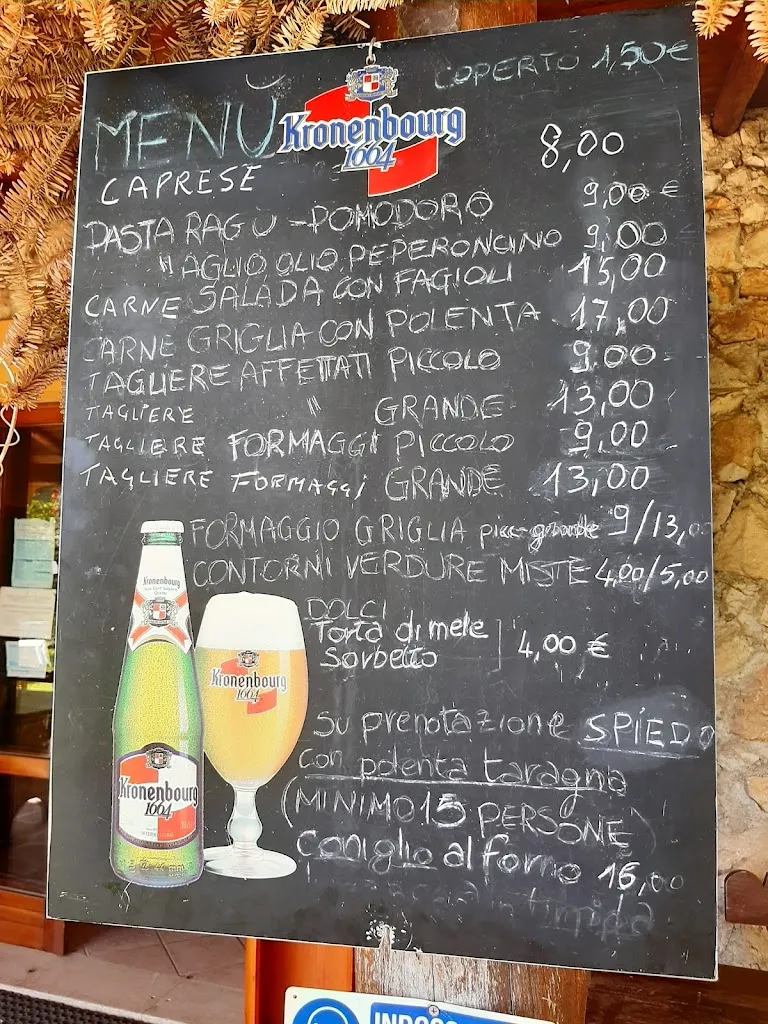 COPERTO 1,50€
MENÙ
Kronenbourg
1664
CAPRESE 8,00
PASTA RAGÙ - POMODORO 9,00 €
" AGLIO OLIO PEPERONCINO 9,00
CARNE SALADA CON FAGIOLI 15,00
CARNE GRIGLIA CON POLENTA 17,00
TAGLIERE AFFETTATI PICCOLO 9,00
TAGLIERE " GRANDE 13,00
TAGLIERE FORMAGGI PICCOLO 9,00
TAGLIERE FORMAGGI GRANDE 13,00
FORMAGGIO GRIGLIA picc-grande 9/13,00
CONTORNI VERDURE MISTE 4,00/5,00
DOLCI
Torta di mele
Sorbetto 4,00 €
Su prenotazione SPIEDO
con polenta taragna
(MINIMO 15 PERSONE)
Coniglio al forno 16,00
Kronenbourg
Kronenbourg
1664
Kronenbourg
1664